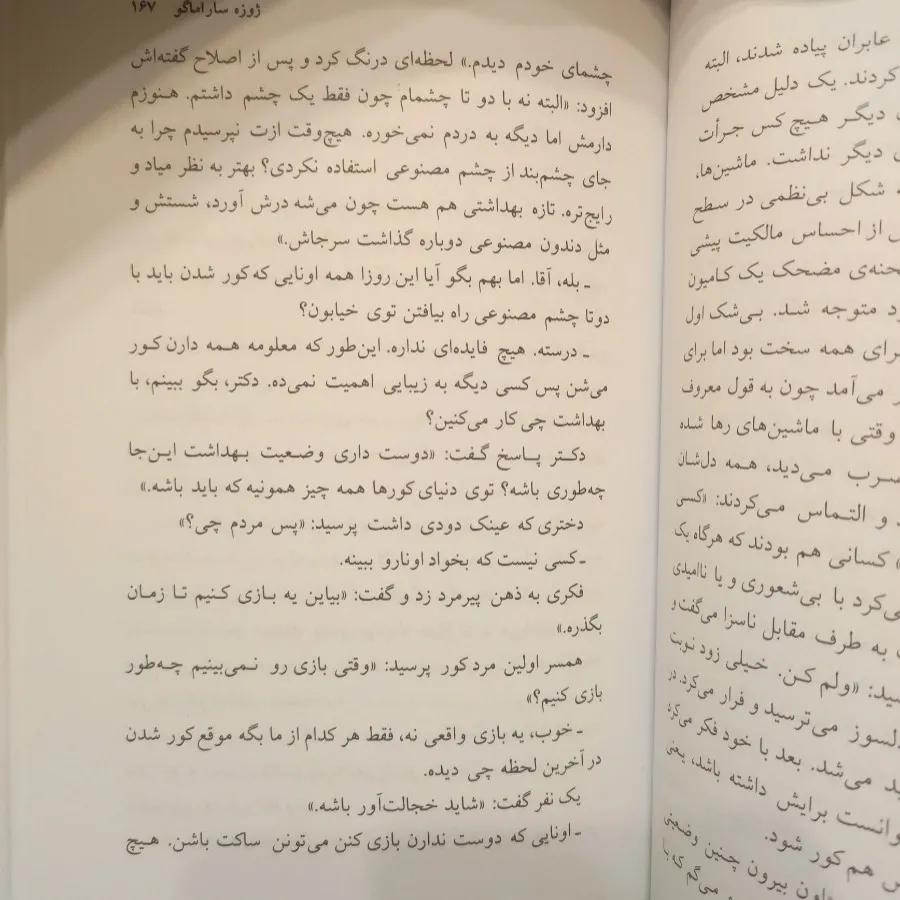 عابران پیاده شدند، البته
کردند. یک دلیل مشخص
دیگر هیچ کس جرأت
دیگر نداشت. ماشین‌ها،
شکل بی‌نظمی در سطح
از احساس مالکیت پیشی
صحنه‌ی مضحک یک کامیون
متوجه شد. بی‌شک اول
برای همه سخت بود اما برای
می‌آمد چون به قول معروف
وقتی با ماشین‌های رها شده
می‌دید، همه دل‌شان
و التماس می‌کردند: «کسی
کسانی هم بودند که هرگاه یک
می‌کرد با بی‌شعوری و یا ناامیدی
به طرف مقابل ناسزا می‌گفت و
«ولم کن. خیلی زود نوبت
دلسوز می‌ترسید و فرار می‌کرد. در
می‌شد. بعد با خود فکر می‌کرد
برایش داشته باشد، یعنی
هم کور شود.
بیرون چنین وضعی
می‌گم که با
ژوزه ساراماگو ۱۶۷
چشمای خودم دیدم.» لحظه‌ای درنگ کرد و پس از اصلاح گفته‌اش
افزود: «البته نه با دو تا چشمام چون فقط یک چشم داشتم. هنوزم
دارمش اما دیگه به دردم نمی‌خوره. هیچ‌وقت ازت نپرسیدم چرا به
جای چشم‌بند از چشم مصنوعی استفاده نکردی؟ بهتر به نظر میاد و
رایج‌تره. تازه بهداشتی هم هست چون می‌شه درش آورد، شستش و
مثل دندون مصنوعی دوباره گذاشت سرجاش.»
ـ بله، آقا. اما بهم بگو آیا این روزا همه اونایی که کور شدن باید با
دوتا چشم مصنوعی راه بیافتن توی خیابون؟
ـ درسته. هیچ فایده‌ای نداره. این‌طور که معلومه همه دارن کور
می‌شن پس کسی دیگه به زیبایی اهمیت نمی‌ده. دکتر، بگو ببینم، با
بهداشت چی کار می‌کنین؟
دکتر پاسخ گفت: «دوست داری وضعیت بهداشت این‌جا
چه‌طوری باشه؟ توی دنیای کورها همه چیز همونیه که باید باشه.»
دختری که عینک دودی داشت پرسید: «پس مردم چی؟»
ـ کسی نیست که بخواد اونارو ببینه.
فکری به ذهن پیرمرد زد و گفت: «بیاین یه بازی کنیم تا زمان
بگذره.»
همسر اولین مرد کور پرسید: «وقتی بازی رو نمی‌بینیم چه‌طور
بازی کنیم؟»
ـ خوب، یه بازی واقعی نه، فقط هر کدام از ما بگه موقع کور شدن
در آخرین لحظه چی دیده.
یک نفر گفت: «شاید خجالت‌آور باشه.»
ـ اونایی که دوست ندارن بازی کنن می‌تونن ساکت باشن. هیچ